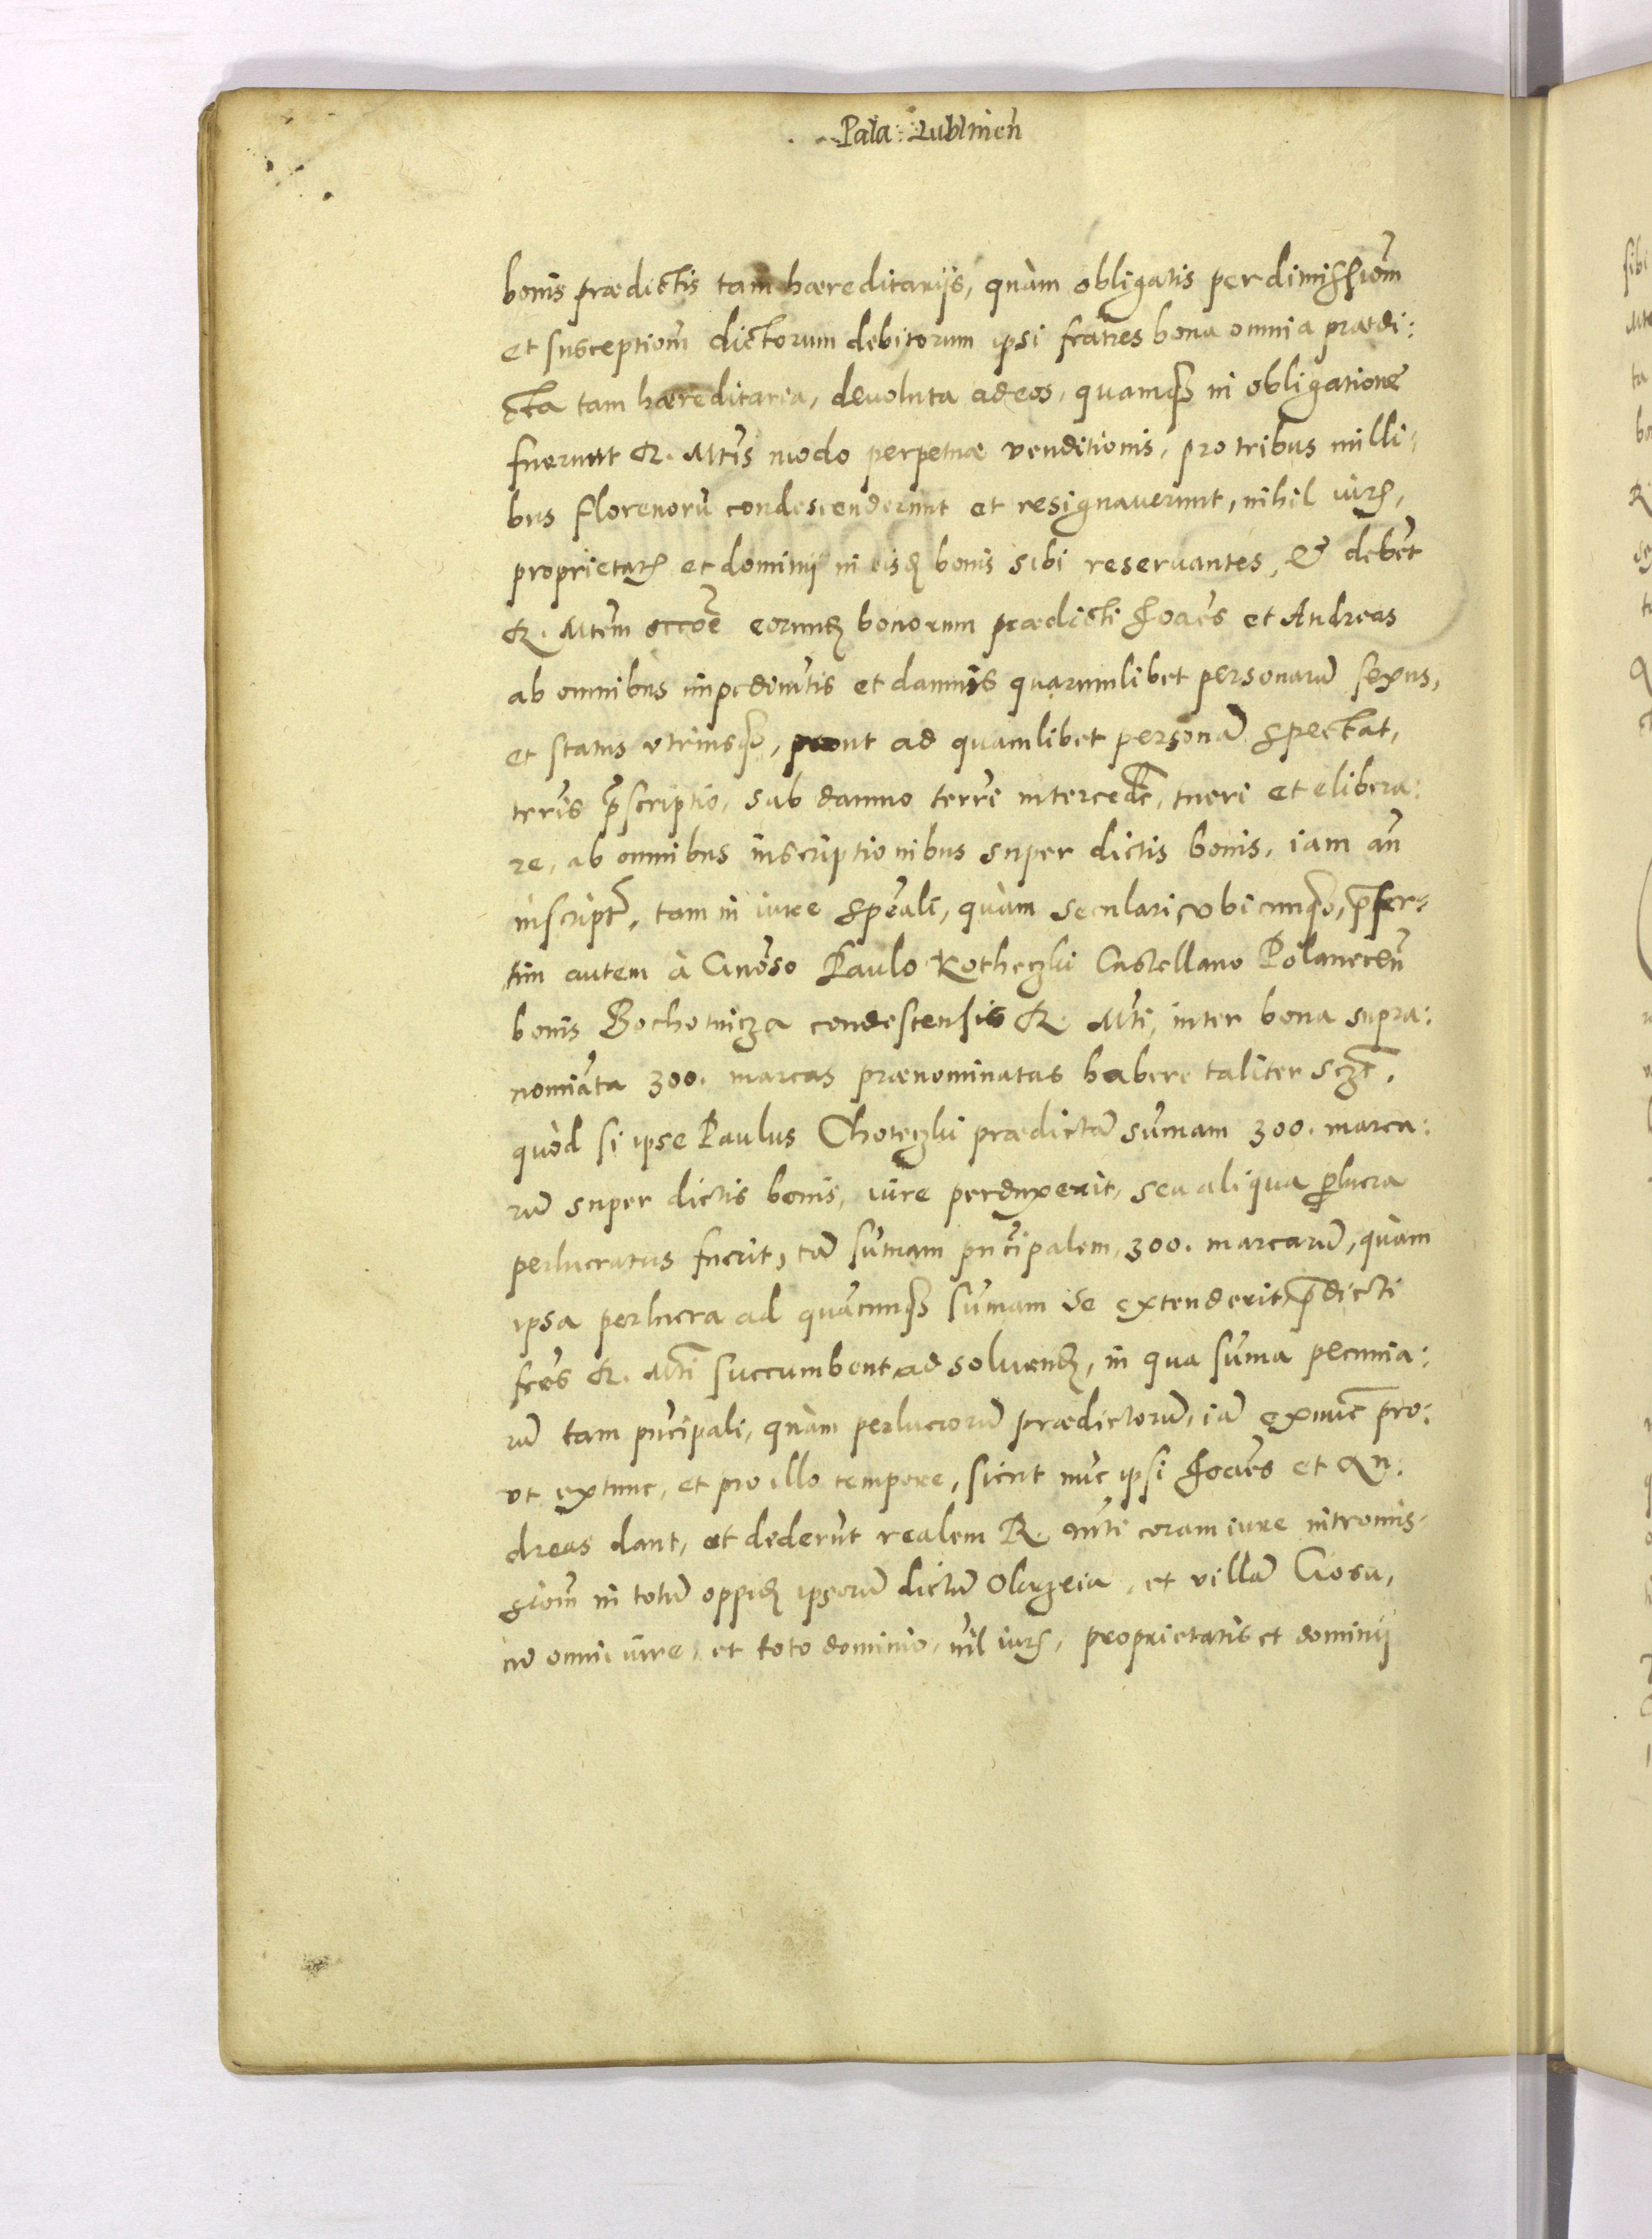 Pala: Lublinen̄
bonis prædictis tam hæreditarijs, quàm obligatis per dimissiom̃
et susceptiom̃ dictorum debitorum ipsi fratres bona omnia prædi:
cta tam hæreditaria, deuoluta ad eos, quamqꝫ in obligatione
fuerunt R. Mtis̃ modo perpetuæ venditionis, pro tribus milli:
bus florenorū condescenderunt et resignauerunt, nihil iurꝭ,
proprietatꝭ et dominij in eisdꝫ bonis sibi reseruantes, Et debēt
R. Mtem̃ occõe eorundꝫ bonorum prædicti Joañes et Andreas
ab omnibus impedimt̃is et damnis quarumlibet personarū sexus,
et status vtriusqꝫ, prout ad quamlibet personā spectat,
terrĩs p̄scriptio, sub damno terrĩ intercedẽ, tueri et elibera:
re, ab omnibus inscriptionibus super dictis bonis, iam añ
inscriptꝭ, tam in iure sp̃eali, quàm seculari, vbicunqꝫ, p̄ser:
tim autem à Gnõso Paulo Kotheczki Castellano Polanecen̄
bonis Bochotnicza condescensis R. Mti, inter bona supra:
nomiāta 300. marcas prænominatas habere taliter sczt̃.
quòd si ipse Paulus Choteczki prædictā sum̄am 300. marca:
rū super dictis bonis, iure perduxerit, seu aliqua ꝑlucra
perlucratus fuerit, tā sum̄am prĩcipalem, 300. marcarū, quàm
ipsa perlucra ad quācunqꝫ sum̄am se extenderit, p̄dicti
frẽs R. Mti succumbent ad soluendꝫ, in qua sum̄a pecunia:
rū tam prĩcipali, quàm perlucrorū prædictorū, iā exnūc pro:
vt extunc, et pro illo tempore, sicut nūc ipsi Joañes et An:
dreas dant, et dederūt realem R. Mti coram iure intromis:
siom̃ in totū oppidꝫ ipsorū dictū Olczeia, et villā Giosu,
cū omni iure, et toto dominio, nil iurꝭ, proprietatis et dominij